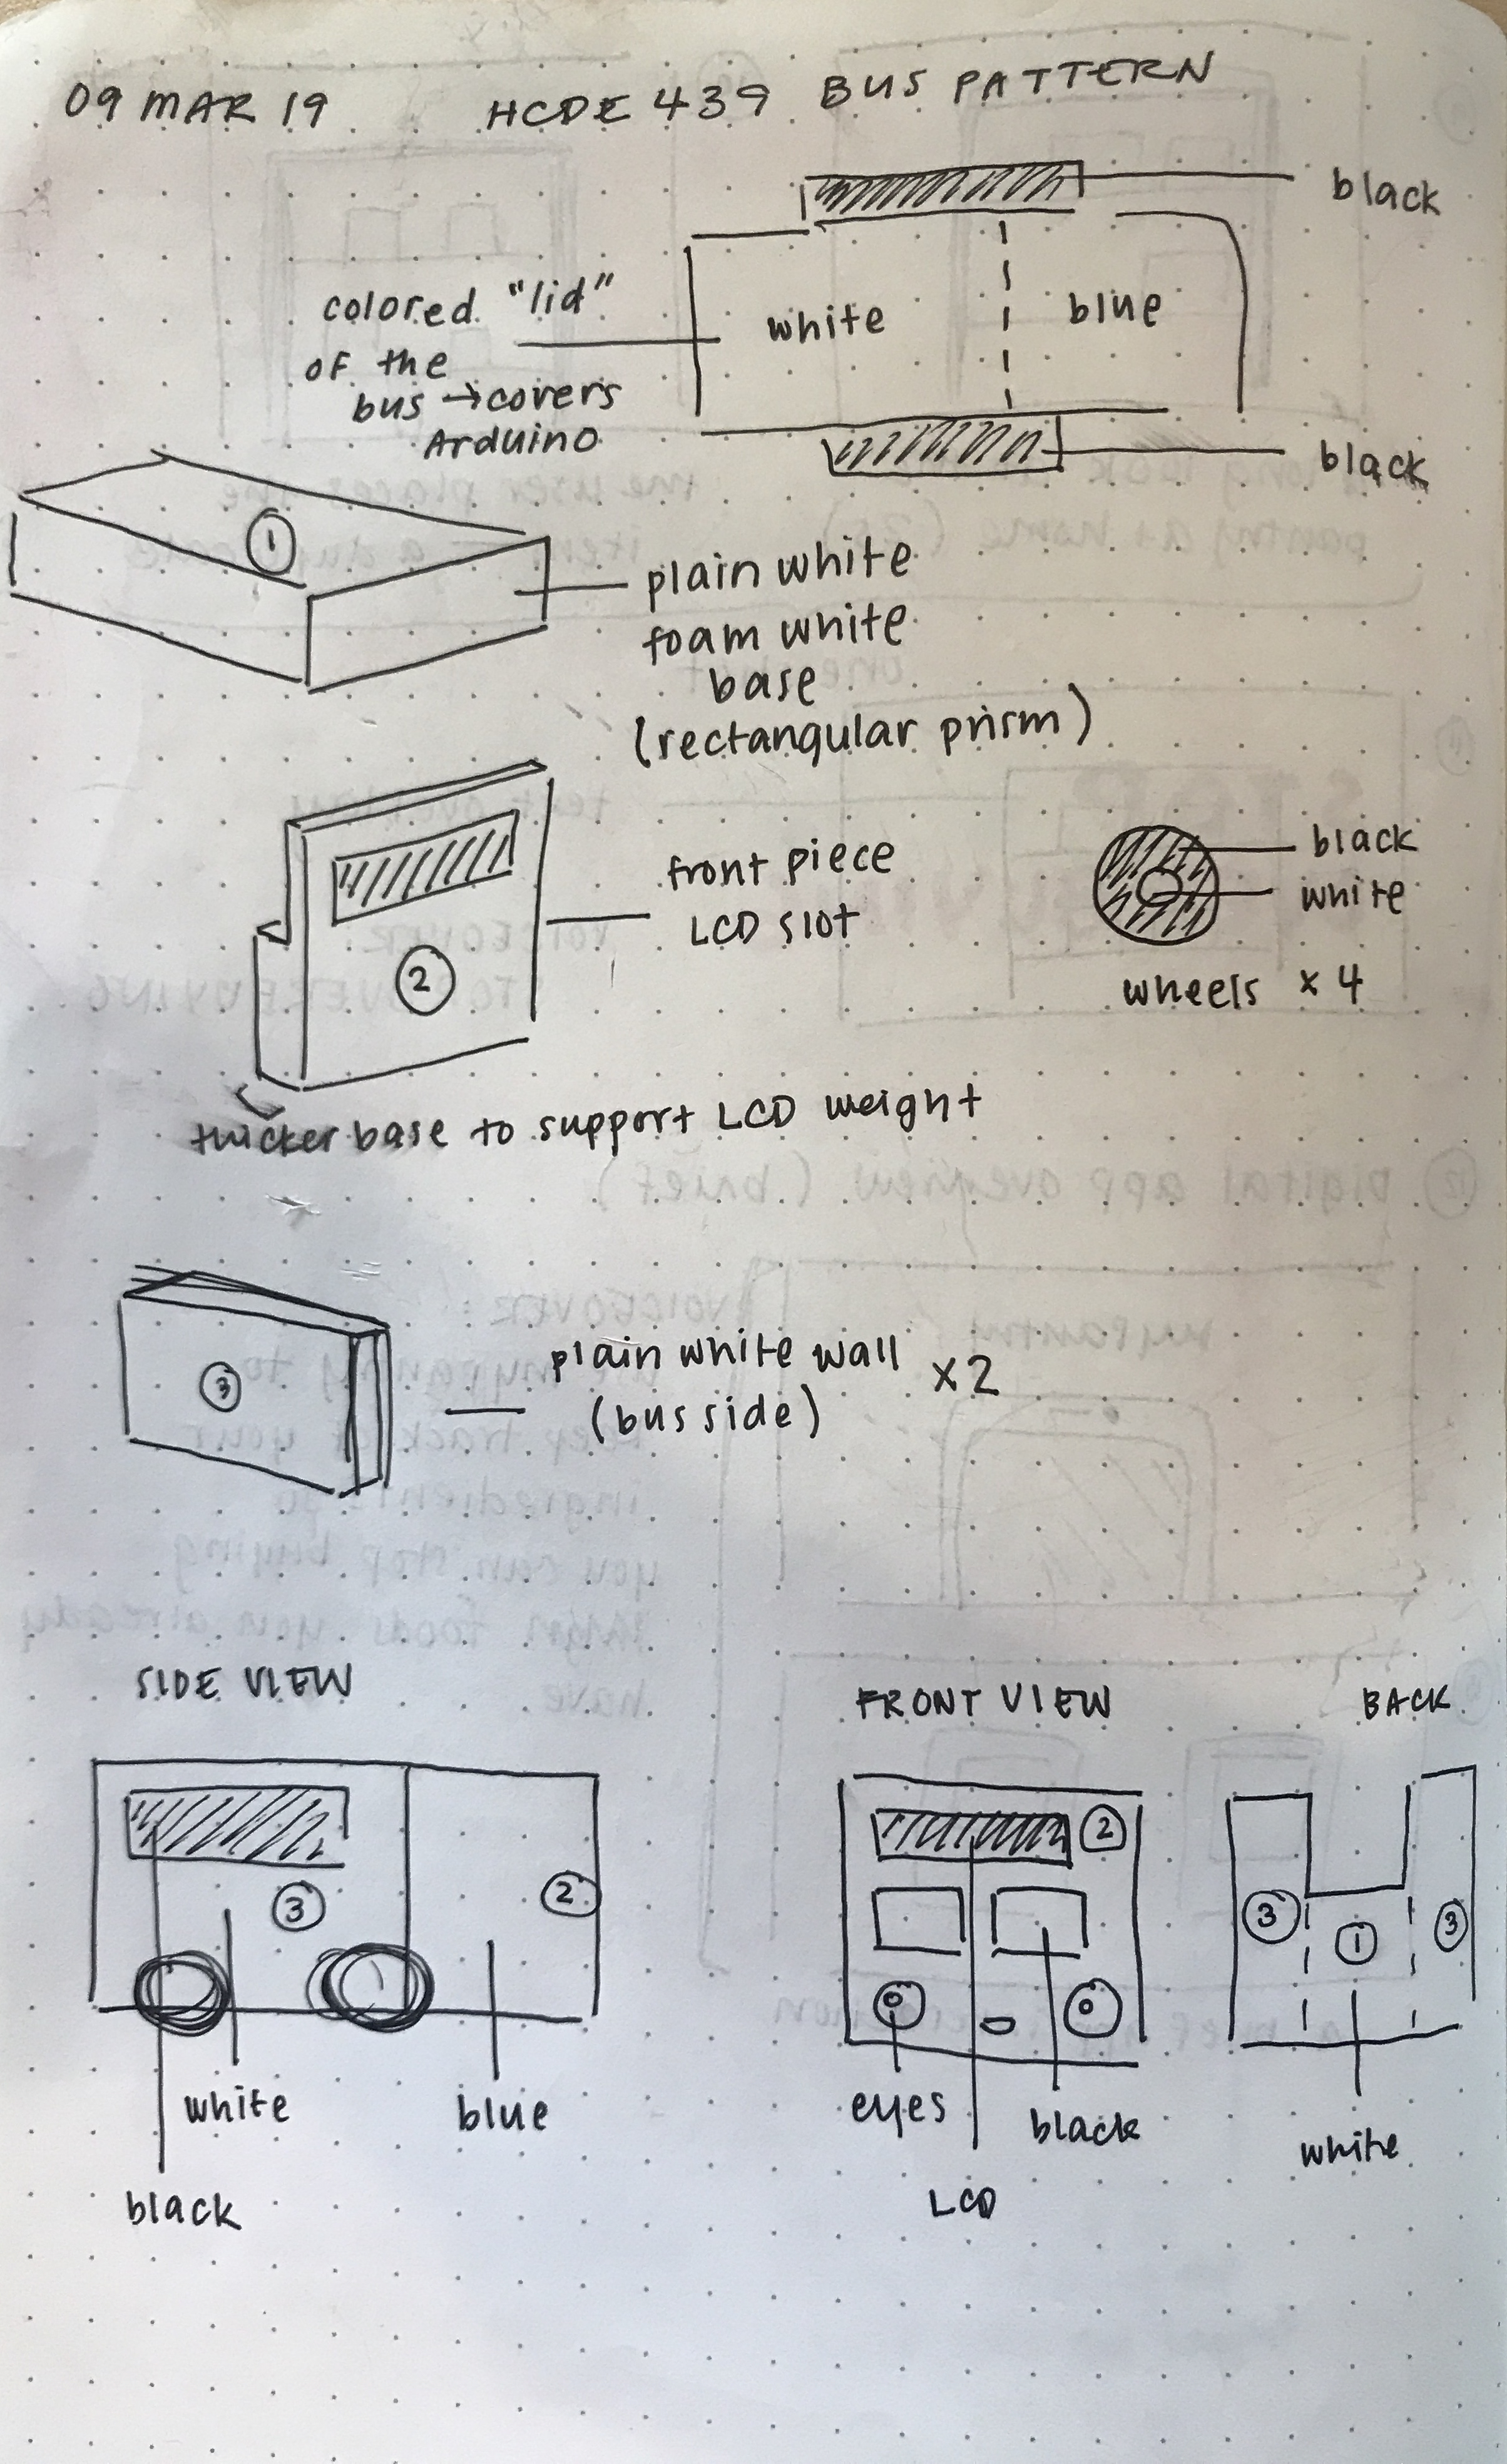 09 MAR 19 HCDE 439 BUS PATTERN
black
colored "lid"
of the
bus → covers
Arduino
white
blue
black
1
plain white
foam white
base
(rectangular prism)
front piece
LCD slot
2
black
white
wheels x 4
thicker base to support LCD weight
3
plain white wall x2
(bus side)
SIDE VIEW
FRONT VIEW
BACK
3
2
white
blue
black
2
eyes
black
LCD
3
1
3
white